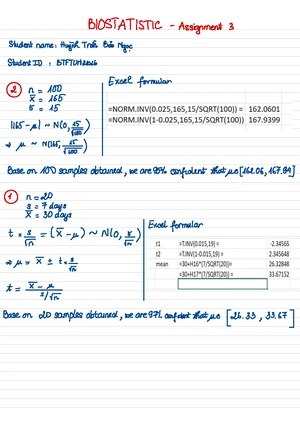 BIOSTATISTIC - Assignment 3
Student name: Huỳnh Trần Bảo Ngọc
Student ID :
② n = 100
x̄ = 165
σ = 15
|165 - μ| ~ N(0, 15/√100)
⇒ μ ~ N(165, 15/√100)
Excel formular
=NORM.INV(0.025,165,15/SQRT(100)) = 162.0601
=NORM.INV(1-0.025,165,15/SQRT(100)) = 167.9399
Base on 100 samples obtained, we are 95% confident that μ is [162.06, 167.94]
① n = 20
s = 7 days
x̄ = 30 days
t × s/√n = (x̄ - μ) ~ N(0, s/√n)
⇒ μ = x̄ ± t × s/√n
t = x̄ - μ / s/√n
Excel formular
t1 =T.INV(0.015,19) = -2.34565
t2 =T.INV(1-0.015,19) = 2.345648
mean =30+H16*(7/SQRT(20))= 26.32848
=30+H17*(7/SQRT(20)) = 33.67152
Base on 20 samples obtained, we are 97% confident that μ is [26.33 , 33.67]